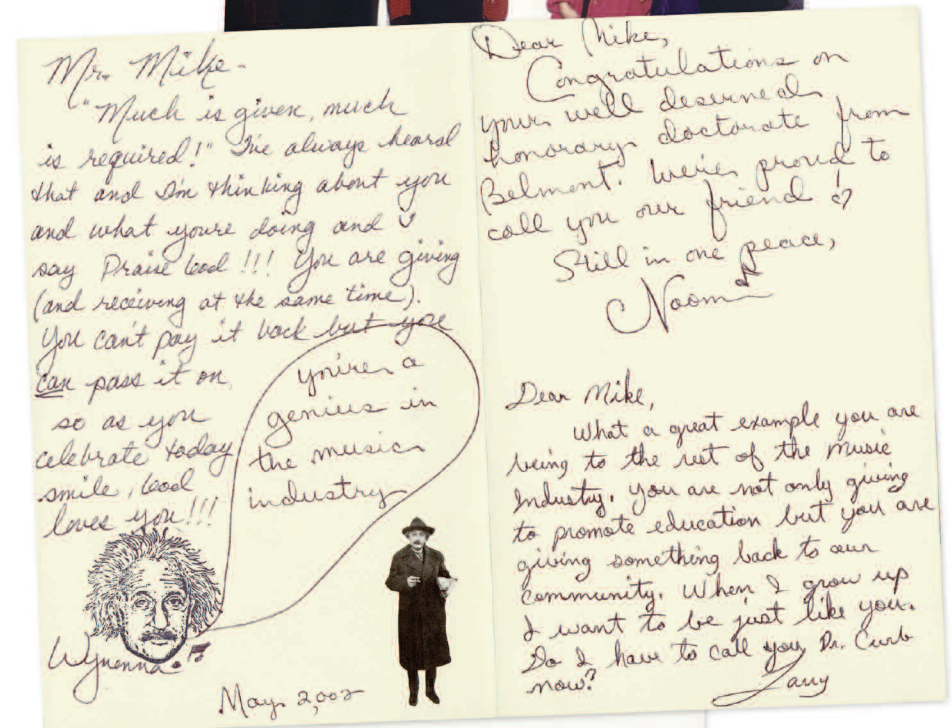 Mr. Mike-
"Much is given, much
is required!" I've always heard
that and I'm thinking about you
and what youre doing and I
say Praise God!!! You are giving
(and receiving at the same time).
You can't pay it back but you
can pass it on,
so as you
celebrate today
smile, God
loves you!!!
you're a
genius in
the music
industry
Wynonna
May 2,002
Dear Mike,
Congratulations on
your well deserved
honorary doctorate from
Belmont. We're proud to
call you our friend!
Still in one peace,
Naomi
Dear Mike,
What a great example you are
being to the rest of the Music
Industry. You are not only giving
to promote education but you are
giving something back to our
community. When I grow up
I want to be just like you.
Do I have to call you Dr. Curb
now?
Larry